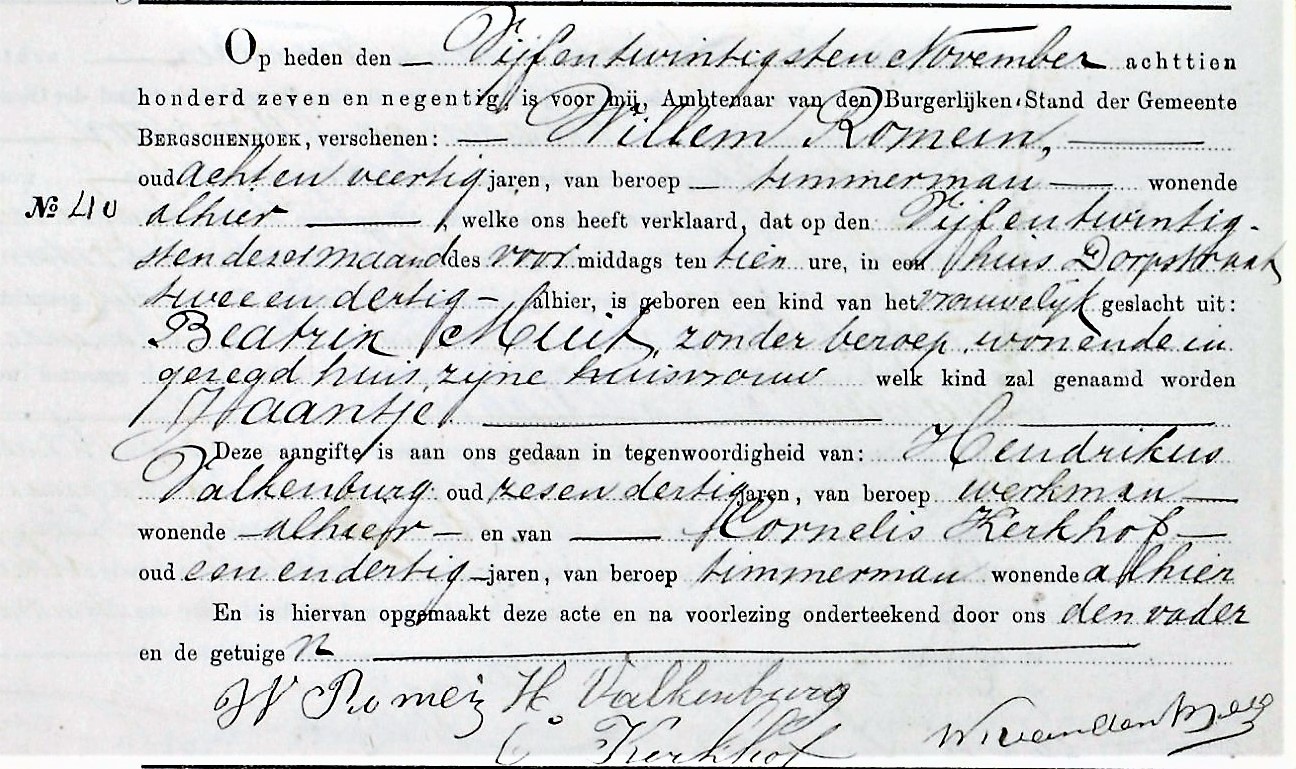 Op heden den Vijfentwintigsten November achttien
honderd zeven en negentig, is voor mij, Ambtenaar van den Burgerlijken Stand der Gemeente
BERGSCHENHOEK, verschenen: Willem Romein,
oud acht en veertig jaren, van beroep timmerman wonende
No 40 alhier, welke ons heeft verklaard, dat op den Vijfentwintig-
sten dezer maand des voor middags ten tien ure, in een huis Dorpstraat
twee en dertig - alhier, is geboren een kind van het vrouwelijk geslacht uit:
Beatrix Muit, zonder beroep, wonende in
gezegd huis, zijne huisvrouw welk kind zal genaamd worden
Jaantje
Deze aangifte is aan ons gedaan in tegenwoordigheid van: Hendrikus
Valkenburg oud zes en dertig jaren, van beroep werkman
wonende alhier en van Kornelis Kerkhof
oud een en dertig jaren, van beroep timmerman wonende alhier
En is hiervan opgemaakt deze acte en na voorlezing onderteekend door ons den vader
en de getuigen
W Romein H. Valkenburg
C Kerkhof